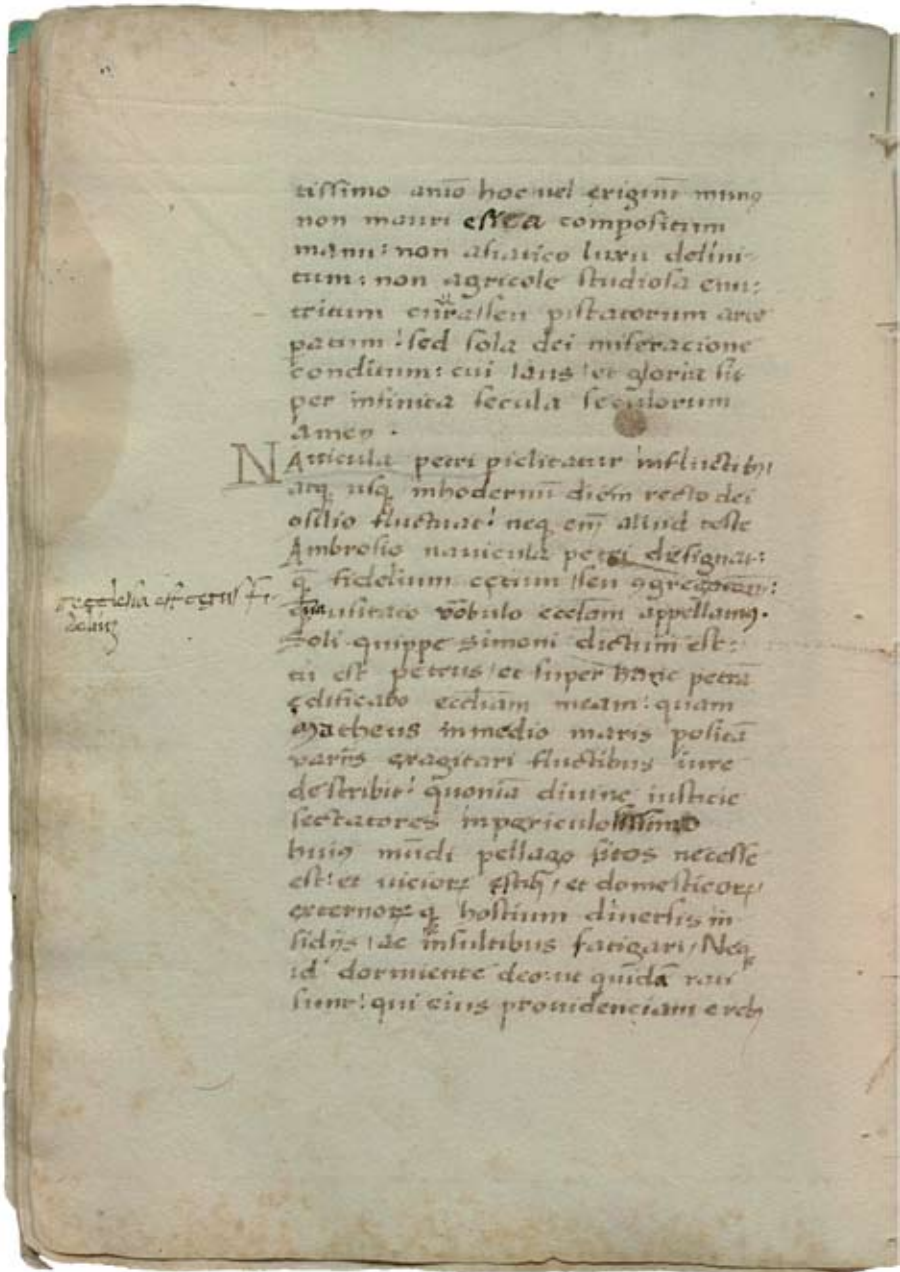 tissimo anīo hoc vel exiguū munꝯ
non mauri esca compositum
manu: non asiatico luxu delini-
tum: non agricole studiosa enu-
tritum cura seu pistatorum arte
patum: sed sola dei miseracione
conditum: cui laus et gloria sit
per infinita secula seculorum
amen.
NAvicula petri piclitatur in fluctibꝯ
atqꝫ usqꝫ in hodernū diem recto dei
osilio fluctuat: neqꝫ eīn aliud teste
Ambrosio navicula petri designat:
fidelium cętium seu ꝯgregationem:
ecclesia est cętus fi-
deliuꝫ
qua usitato vōbulo ecclam appellamꝯ.
Soli quippe simoni dictum est:
tu est petrus et super hanc petrā
edificabo ecclīam meam: quam
Matheus in medio maris positā
variis exagitari fluctibus iure
describit: quoniā divine iusticie
sectatores in periculosissimo
huiꝯ mūdi pellago p̄tos necesse
est: et vicioꝝ et domesticoꝝ
externoꝝ qꝫ hostium diversis in-
sidijs ac insultibus fatigari, Neqꝫ
id dormiente deo: ut quidā rati
sunt: qui eius providenciam e rebꝯ